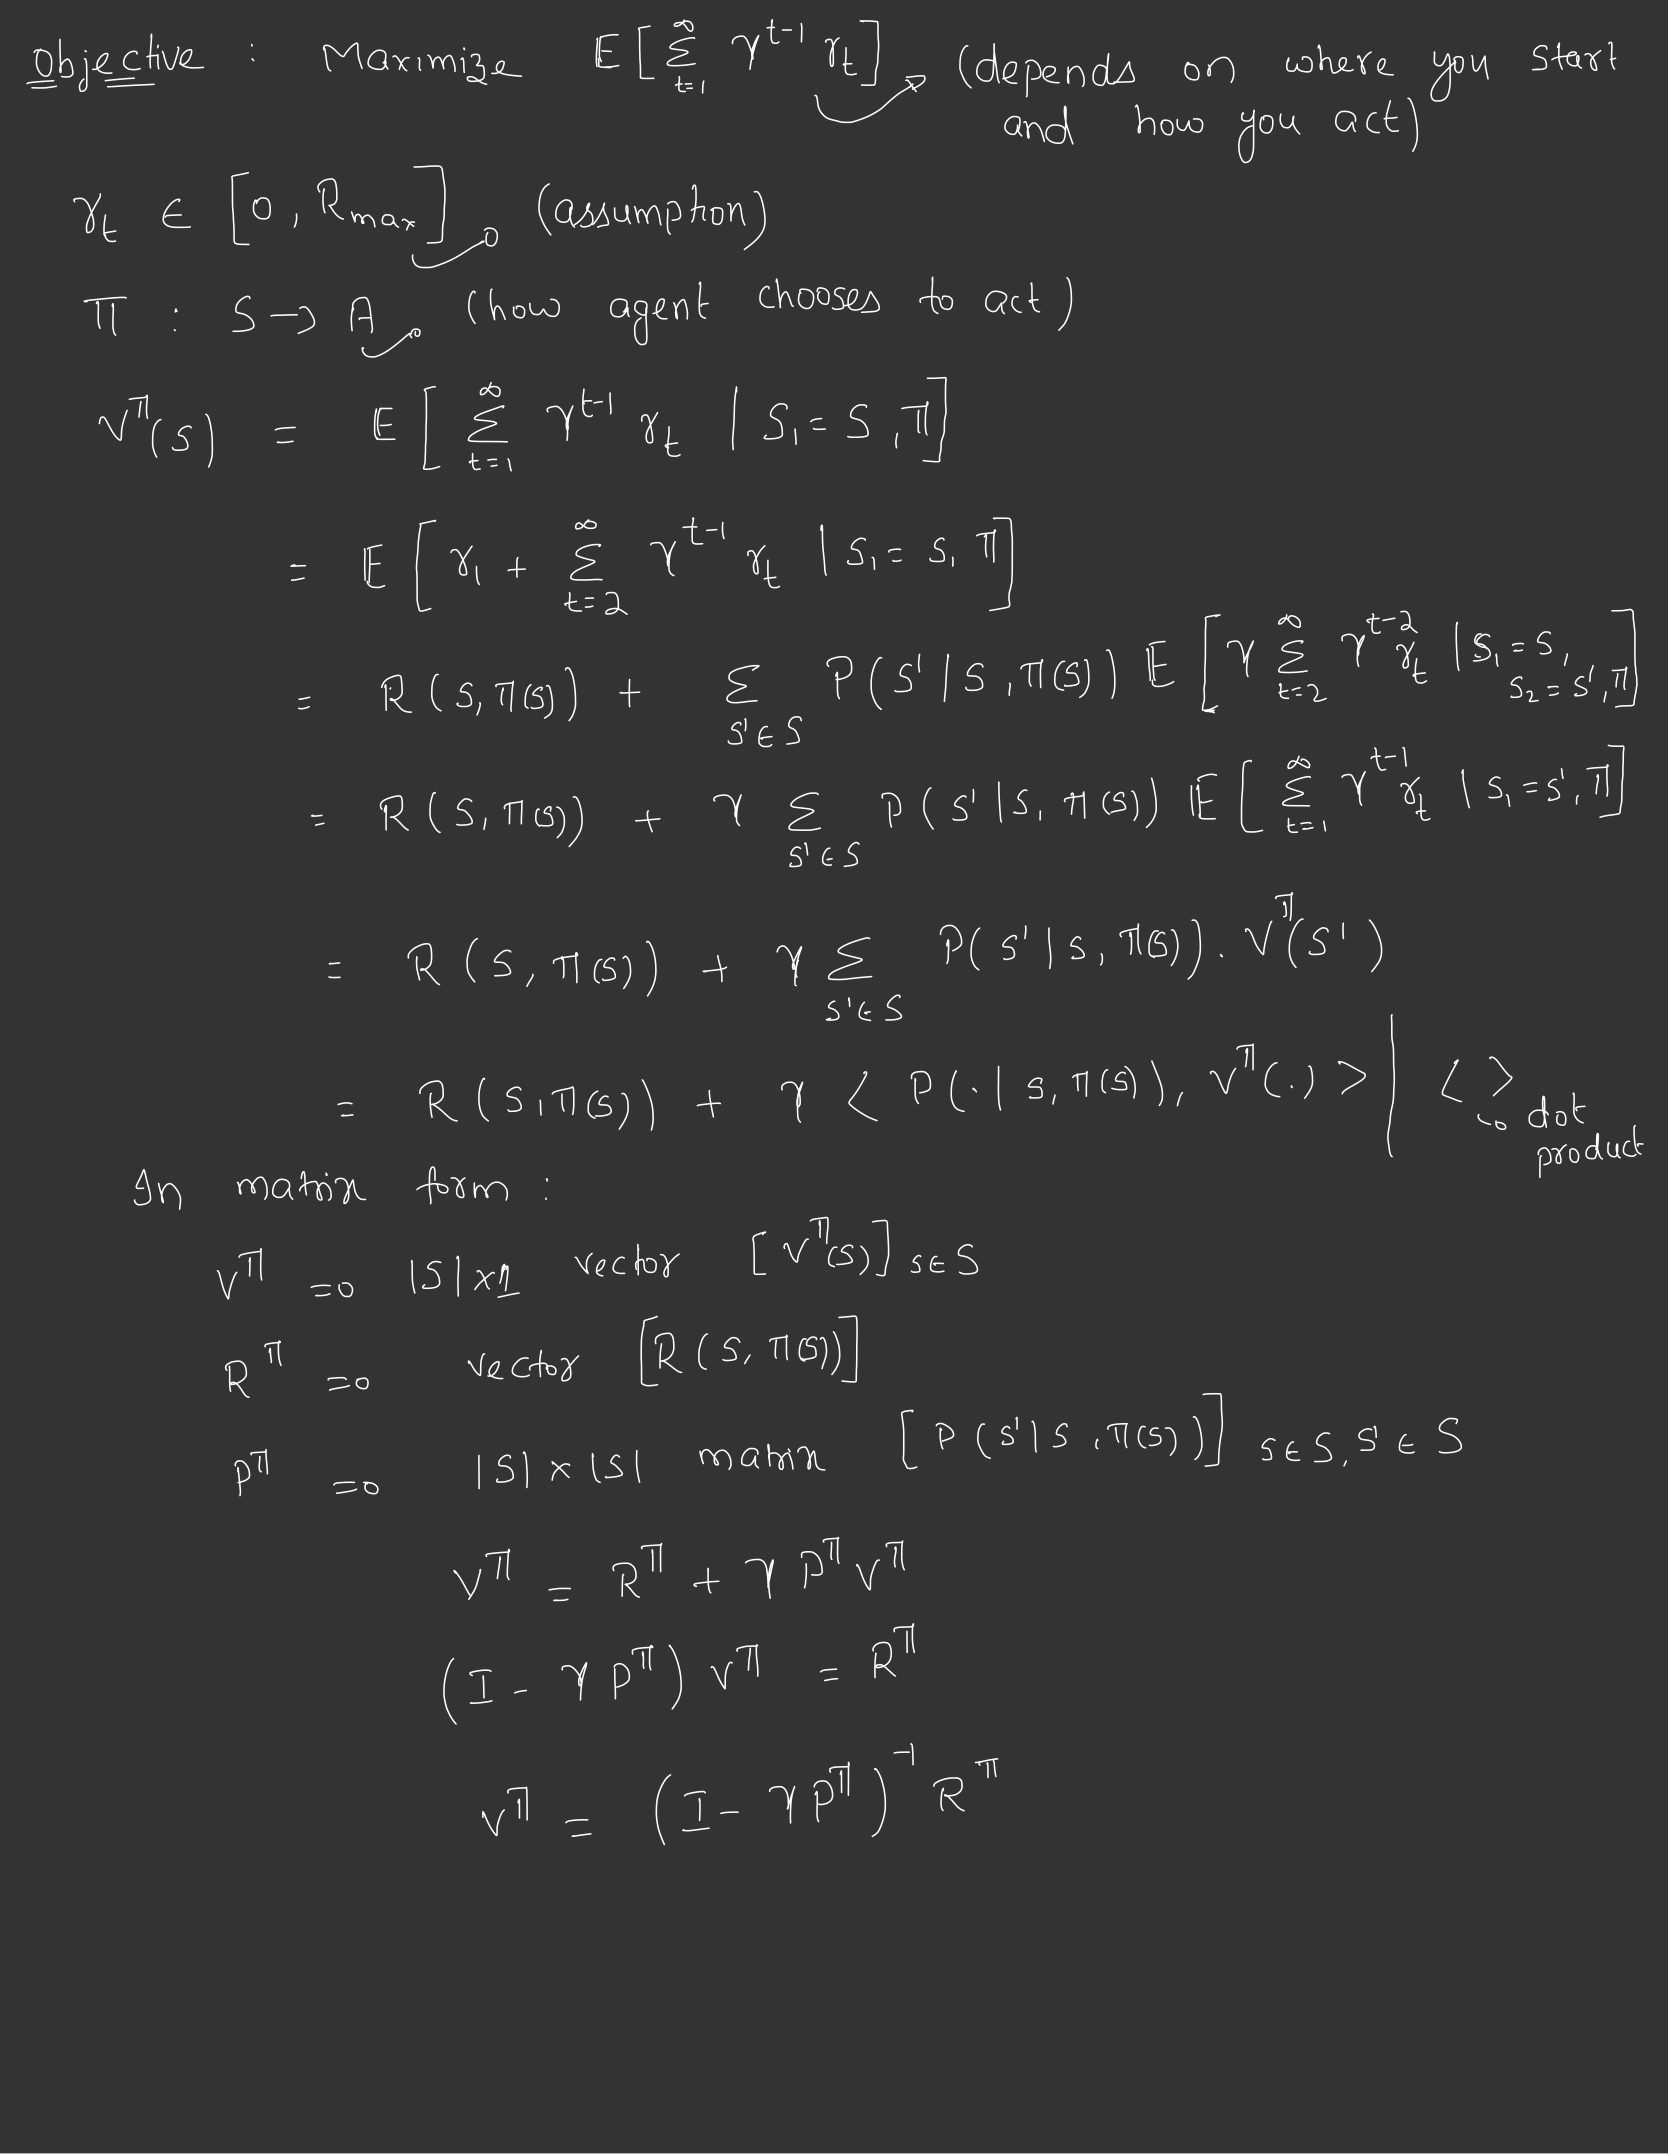 Objective : Maximize E[∑_{t=1}^{∞} γ^{t-1} r_t] → (depends on where you start
and how you act)
r_t ∈ [0, R_max] (assumption)
π : S → A (how agent chooses to act)
V^π(s) = E[∑_{t=1}^{∞} γ^{t-1} r_t | S_1 = S, π]
= E[r_1 + ∑_{t=2}^{∞} γ^{t-1} r_t | S_1 = S, π]
= R(S, π(S)) + ∑_{S'∈S} P(S' | S, π(S)) E[γ ∑_{t=2}^{∞} γ^{t-2} r_t | S_1 = S, S_2 = S', π]
= R(S, π(S)) + γ ∑_{S'∈S} P(S' | S, π(S)) E[∑_{t=1}^{∞} γ^{t-1} r_t | S_1 = S', π]
= R(S, π(S)) + γ ∑_{S'∈S} P(S' | S, π(S)) . V^π(S')
= R(S, π(S)) + γ < P(· | S, π(S)), V^π(.) > | < > → dot
product
In matrix form :
V^π ⇒ |S| × 1 vector [V^π(S)]_{S∈S}
R^π ⇒ vector [R(S, π(S))]
P^π ⇒ |S| × |S| matrix [P(S' | S, π(S))]_{S∈S, S'∈S}
V^π = R^π + γ P^π V^π
(I - γ P^π) V^π = R^π
V^π = (I - γ P^π)^{-1} R^π